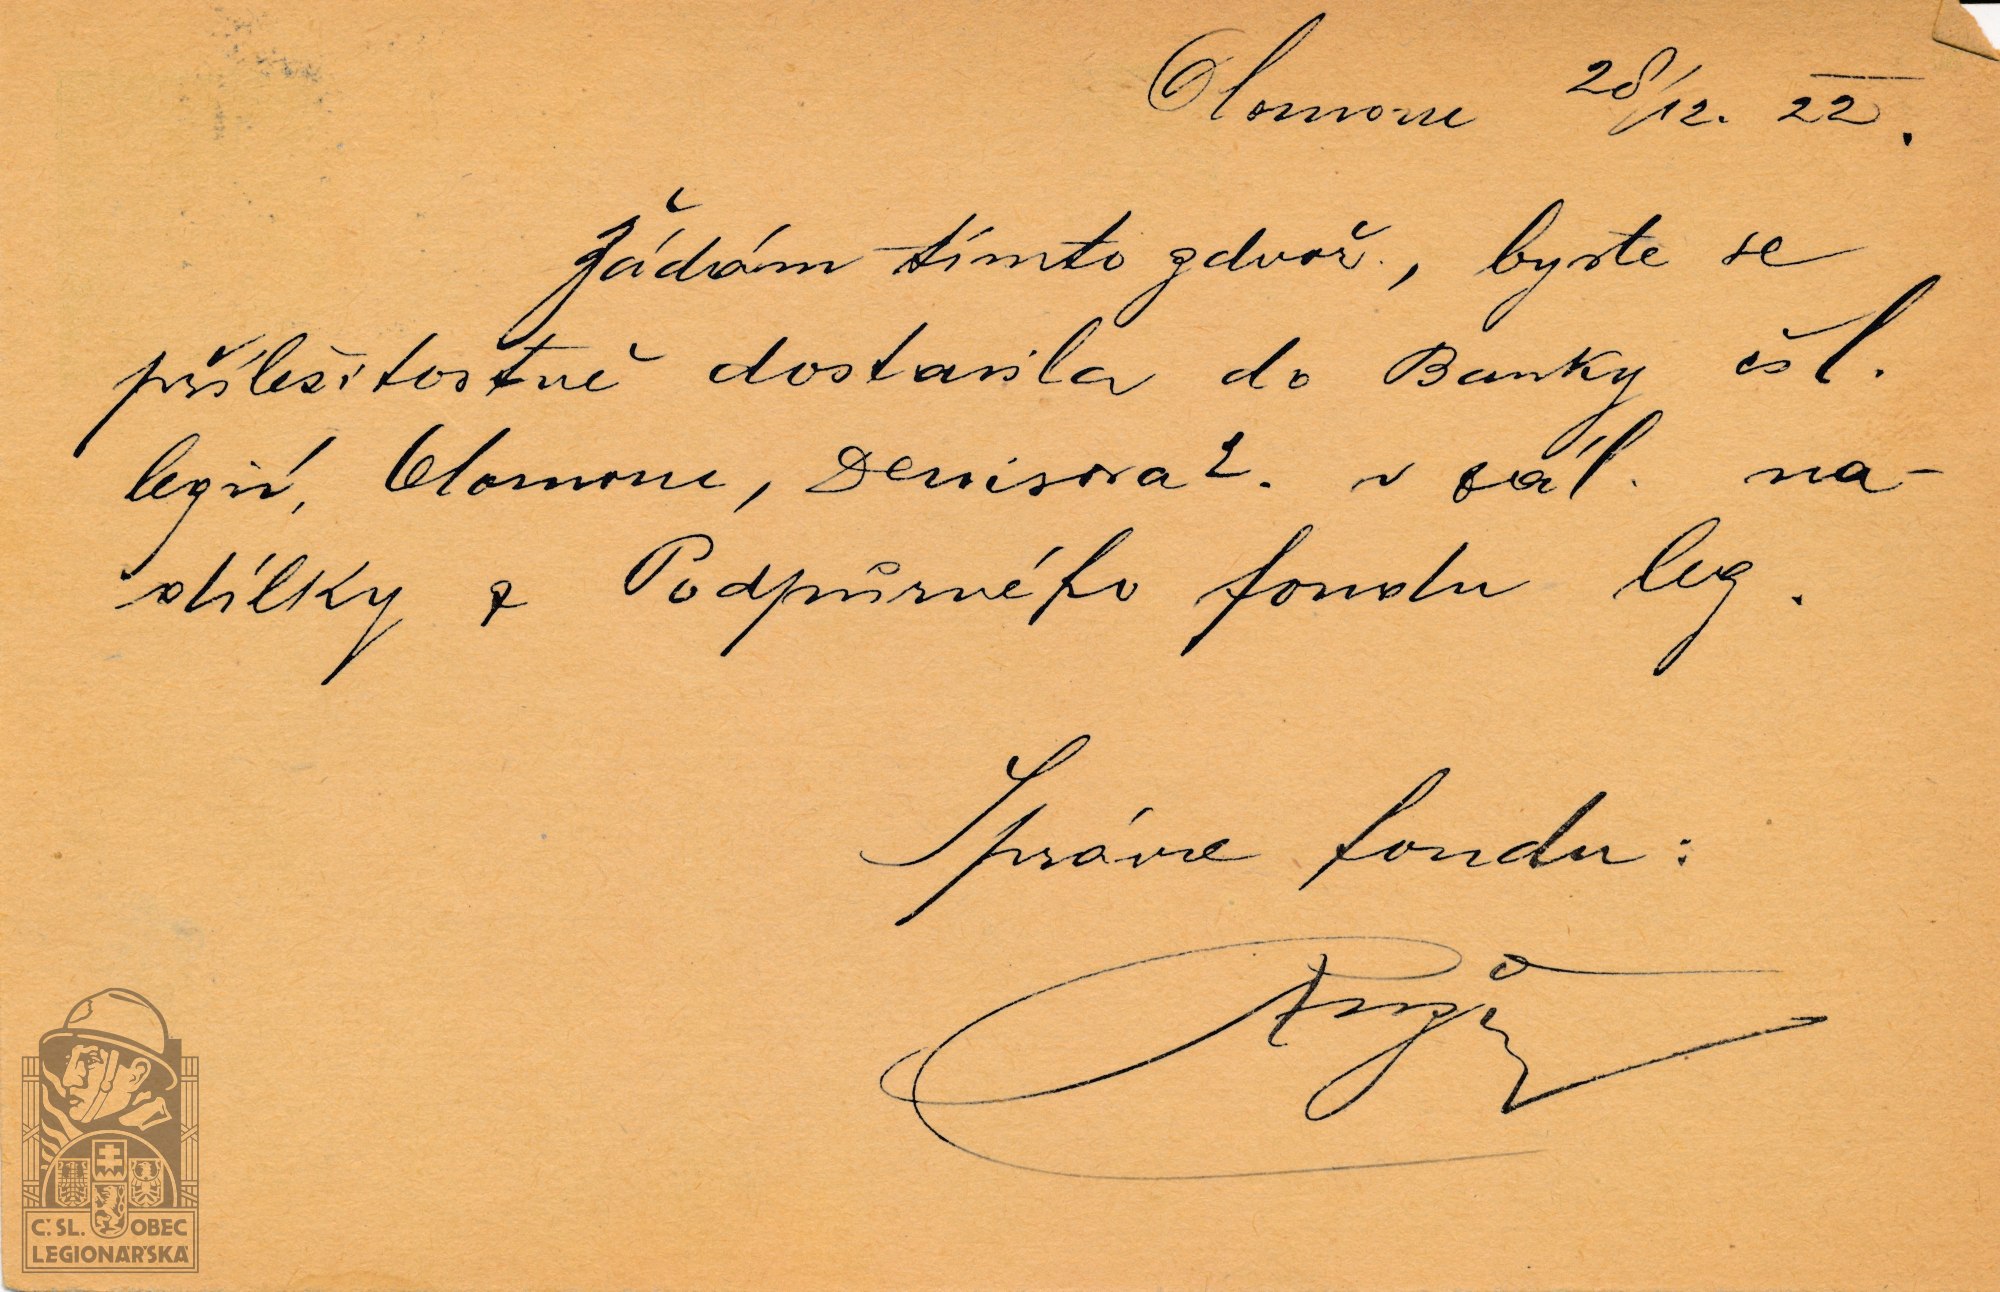 Olomouc 28/12. 22.
Žádám tímto zdvoř., byste se
příležitostně dostavila do Banky čsl.
legií, Olomouc, Denisova 2. v zál. na-
dílky z Podpůrného fondu leg.
Správce fondu:
C.SL. OBEC
LEGIONÁŘSKÁ